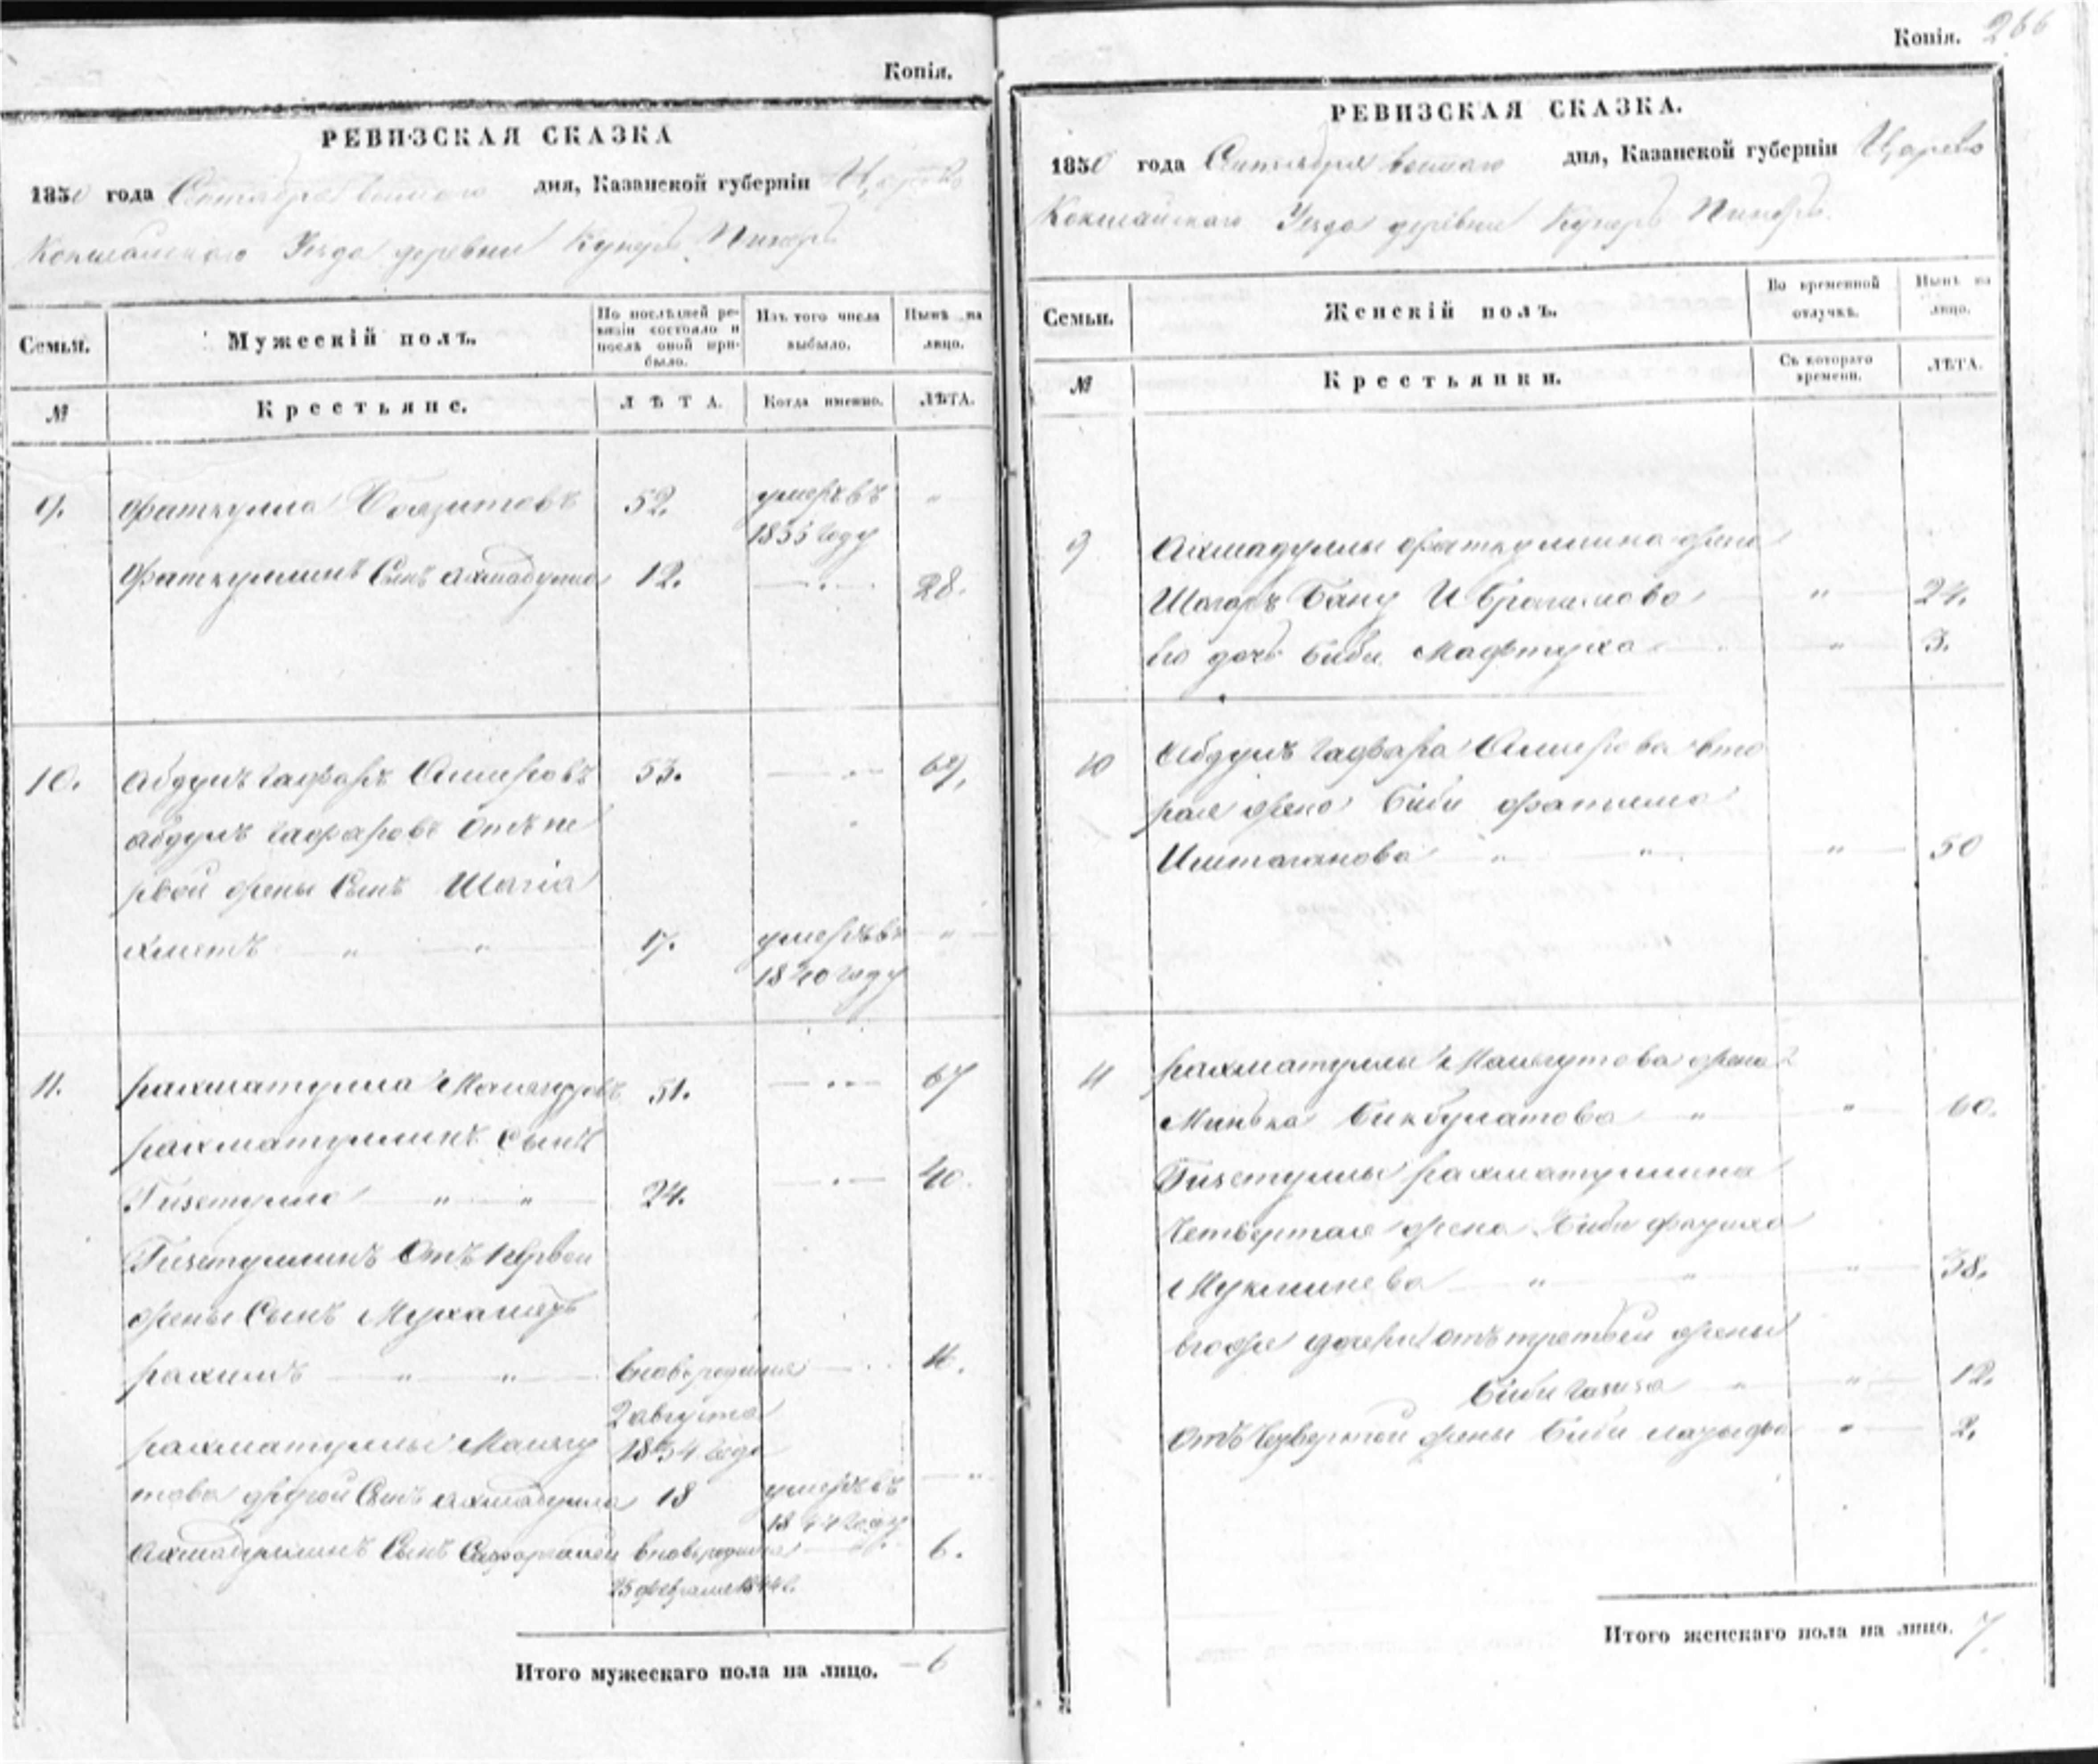 Копія.
РЕВИЗСКАЯ СКАЗКА
1850 года Сентября дня, Казанской губерніи Царево
Кокшайскаго Уезда деревни Кунеръ
Семьи.
Мужескій полъ.
По послѣдней ре-
визіи состояло и
послѣ оной при-
было.
Изъ того числа
выбыло.
Нынѣ на
лицо.
№
Крестьяне.
ЛѢТА.
Когда именно.
ЛѢТА.
9. Фаткулла Баязитовъ 52. умеръ въ "
1835 году
Фаткуллинъ Сынъ Ахмадулла 12. 28.
10. Абдулъ Гафаръ Амировъ 53. 69.
Абдулъ Гафаровъ Отъ пе
рвой жены Сынъ Шагіа
хметъ " " 17. умеръ въ "
1840 году
11. Рахматулла 51. 67
Рахматуллинъ Сынъ
Гизетулла " " 24. 40.
Гизетуллинъ Отъ первой
жены Сынъ Мухаметъ
рахимъ " " вновьрожденъ
2 августа
Рахматуллы
това другой Сынъ Ахмадулла 18 умеръ въ "
1844 году
Ахмадуллинъ Сынъ вновьрожденъ 6.
25 февраля 1844 г.
Итого мужескаго пола на лицо. 6
Копія. 266
РЕВИЗСКАЯ СКАЗКА.
1850 года Сентября дня, Казанской губерніи Царево
Кокшайскаго Уезда деревни Кунеръ
Семьи.
Женскій полъ.
Во временной
отлучкѣ.
Нынѣ на
лицо.
№
Крестьянки.
Съ котораго
времени.
ЛѢТА.
9 Ахмадуллы Фаткуллина жена
Шагаръ Бану Ибрагимова " 24.
Его дочь Биби Мафтуха " 3.
10 Абдулъ Гафара Амирова вто
рая жена Биби Фатима
Иштаганова " " " 50
11 Рахматуллы жена
Минька Бикбулатова " " 60.
Гизетуллы Рахматуллина
Четвертая жена Биби
Муклинева " " " 38.
Его же дочери отъ третьей жены
Биби Газиза " " 12.
Отъ Четвертой жены Биби " 2.
Итого женскаго пола на лицо. 7.